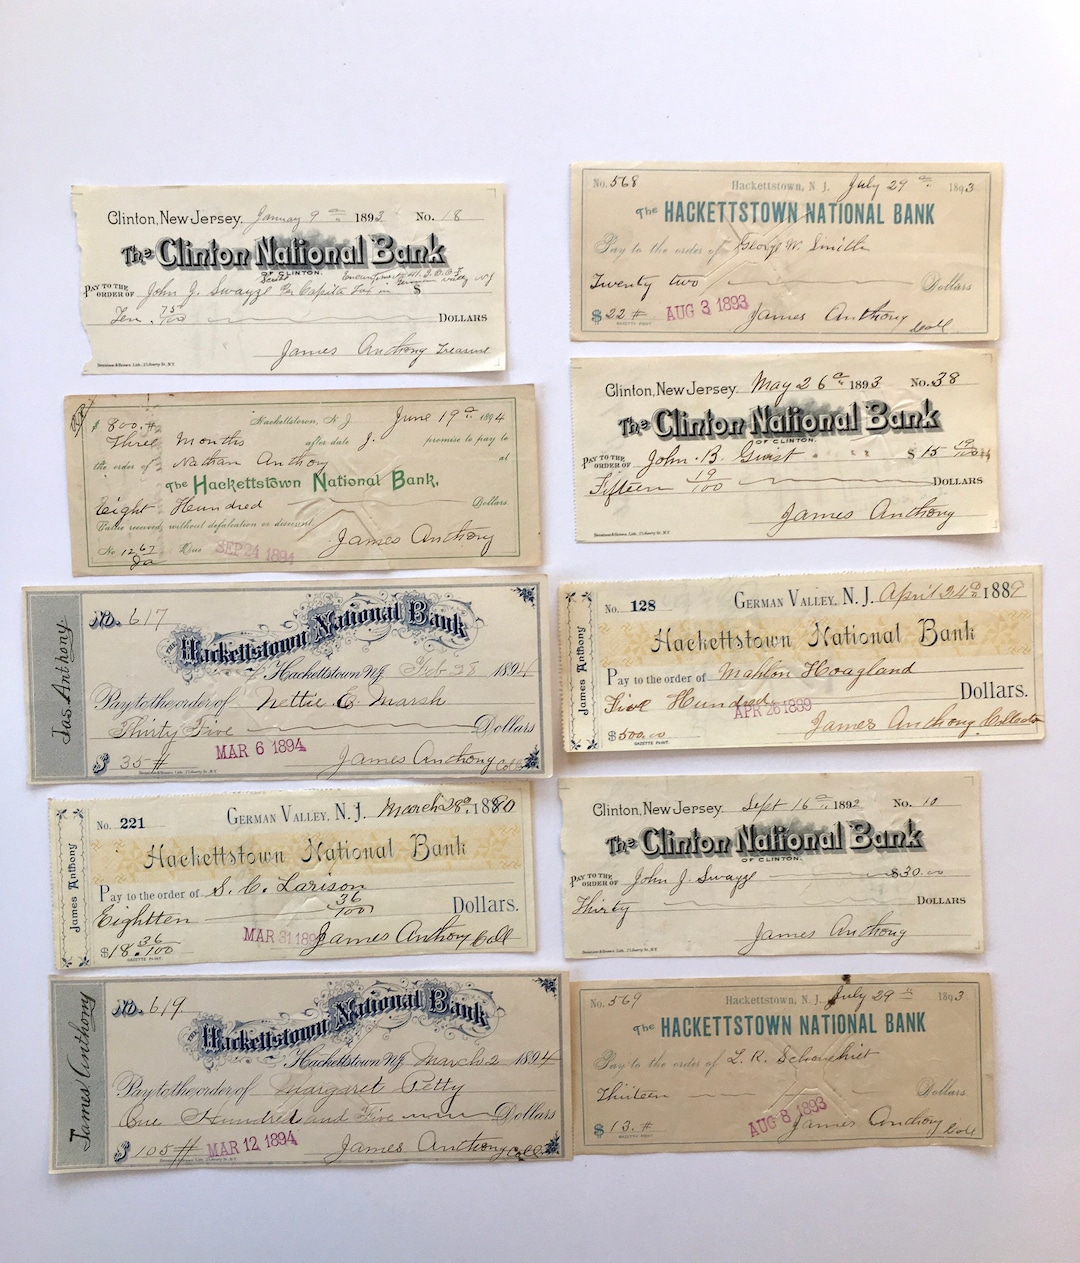 Clinton, New Jersey, January 9th 1893 No. 18
The Clinton National Bank
OF CLINTON.
PAY TO THE ORDER OF John J. Swayze Scribe Per Capita Tax in Encampment 41 I.O.O.F. German Valley NJ $
Ten 75/100 DOLLARS
James Anthony Treasurer
Dennison & Brown, Lith.
$800.#
Hackettstown, N. J. June 19th 1894
Three Months after date I promise to pay to
the order of Nathan Anthony at
The Hackettstown National Bank,
Eight Hundred Dollars.
Value received, without defalcation or discount
No 1267 Due SEP 24 1894 James Anthony
Jas. Anthony
No. 617
THE Hackettstown National Bank
Hackettstown NJ Feb 28 1894
Pay to the order of Nettie E. Marsh
Thirty Five Dollars
$ 35# MAR 6 1894 James Anthony Coll
James Anthony
No. 221 GERMAN VALLEY, N. J. March 28th, 1890
Hackettstown National Bank
Pay to the order of S. C. Larison
Eightten 36/100 Dollars.
$18.36/100 MAR 31 189 James Anthony Coll
GAZETTE PRINT.
James Anthony
No. 619
THE Hackettstown National Bank
Hackettstown NJ March 2 1894
Pay to the order of Margaret Petty
One Hundred and Five Dollars
$ 105# MAR 12 1894 James Anthony Coll
No. 568 Hackettstown, N. J. July 29th 1893
The HACKETTSTOWN NATIONAL BANK
Pay to the order of George W. Smith
Twenty two Dollars
$22# AUG 3 1893 James Anthony Coll
GAZETTE PRINT
Clinton, New Jersey. May 26th 1893 No. 38
The Clinton National Bank
OF CLINTON.
PAY TO THE ORDER OF John B. Guist $15 19/100
Fifteen 19/100 DOLLARS
James Anthony
James Anthony
No. 128 GERMAN VALLEY, N. J. April 24th 1889
Hackettstown National Bank
Pay to the order of Mahlon Hoagland
Five Hundred Dollars.
$500.00 APR 26 1889 James Anthony Collector
GAZETTE PRINT.
Clinton, New Jersey. Sept 16th 1892 No. 10
The Clinton National Bank
OF CLINTON.
PAY TO THE ORDER OF John J. Swayze $30.00
Thirty DOLLARS
James Anthony
No. 569 Hackettstown, N. J. July 29th 1893
The HACKETTSTOWN NATIONAL BANK
Pay to the order of L. R.
Thirteen Dollars
$13.# AUG 8 1893 James Anthony Coll
GAZETTE PRINT